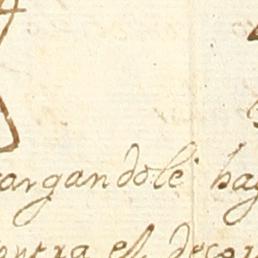 argandole hag
ontra el decor